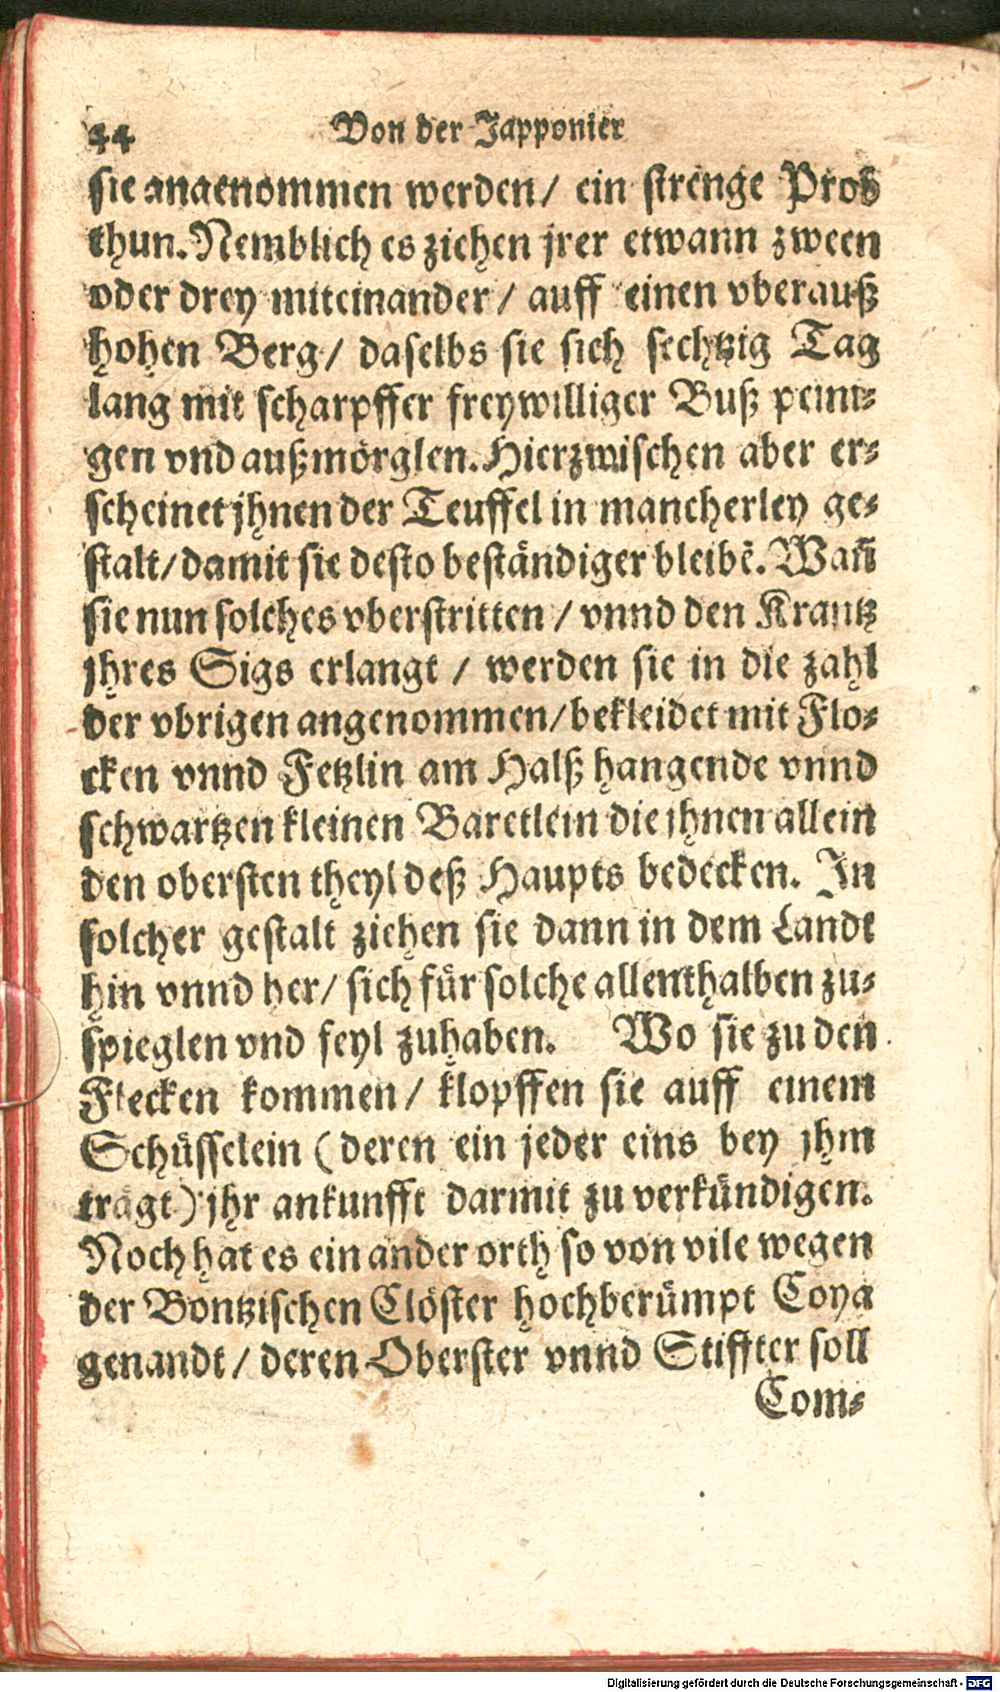 44 Von der Japponier
sie angenommen werden/ ein strenge Prob
thun. Nemblich es ziehen jrer etwann zween
oder drey miteinander/ auff einen vberauß
hohen Berg/ daselbs sie sich sechtzig Tag
lang mit scharpffer freywilliger Buß peini⸗
gen vnd außmörglen. Hierzwischen aber er⸗
scheinet jhnen der Teuffel in mancherley ge⸗
stalt/ damit sie desto beständiger bleibẽ. Wañ
sie nun solches vberstritten/ vnnd den Krantz
jhres Sigs erlangt/ werden sie in die zahl
der vbrigen angenommen/ bekleidet mit Flo⸗
cken vnnd Fetzlin am Halß hangende vnnd
schwartzen kleinen Baretlein die jhnen allein
den obersten theyl deß Haupts bedecken. In
solcher gestalt ziehen sie dann in dem Landt
hin vnnd her/ sich für solche allenthalben zu⸗
spieglen vnd feyl zuhaben. Wo sie zu den
Flecken kommen/ klopffen sie auff einem
Schüsselein (deren ein jeder eins bey jhm
tragt) jhr ankunfft darmit zu verkündigen.
Noch hat es ein ander orth so von vile wegen
der Bontzischen Clöster hochberümpt Coya
genandt/ deren Oberster vnnd Stiffter soll
Com⸗
Digitalisierung gefördert durch die Deutsche Forschungsgemeinschaft - DFG